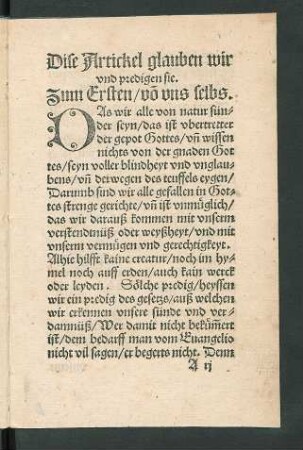 Dise Artickel glauben wir
vnd predigen sie.
Zum Ersten/võ vns selbs.
DAs wir alle von natur sün-
der seyn/das ist vbertretter
der gepot Gottes/vñ wissen
nichts von der gnaden Got
tes/seyn voller blindheyt vnd vnglau-
bens/vñ derwegen des teuffels eygen/
Darumb sind wir alle gefallen in Got-
tes strenge gerichte/vñ ist vnmüglich/
das wir darauß kommen mit vnserm
verstendtnüß oder weyßheyt/vnd mit
vnserm vermügen vnd gerechtigkeyt.
Alhie hilfft kaine creatur/noch im hy-
mel noch auff erden/auch kain werck
oder leyden. Sölche predig/heyssen
wir ein predig des gesetzs/auß welchen
wir erkennen vnsere sünde vnd ver-
damnüß/Wer damit nicht bekũmert
ist/dem bedarff man vom Euangelio
nicht vil sagen/er begerts nicht. Denn
A ij